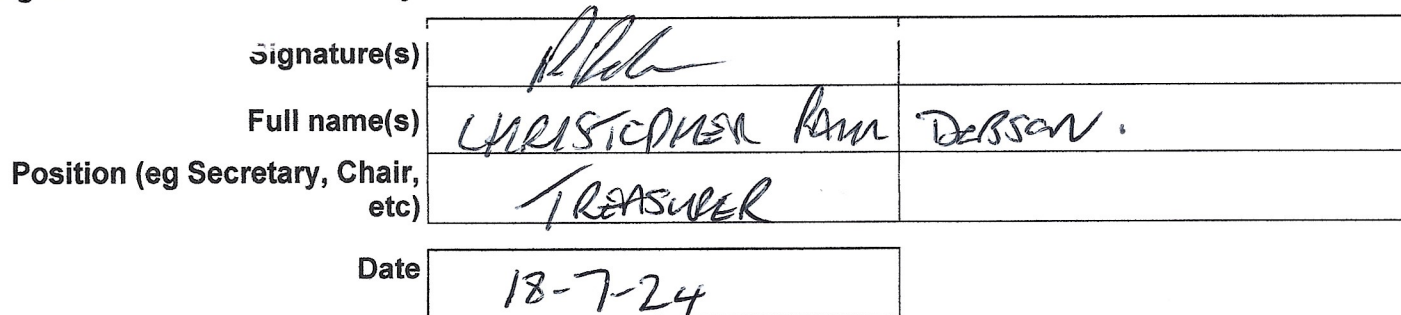 Signature(s)
Full name(s) CHRISTOPHER DEBSON .
Position (eg Secretary, Chair,
etc) TREASURER
Date 18-7-24